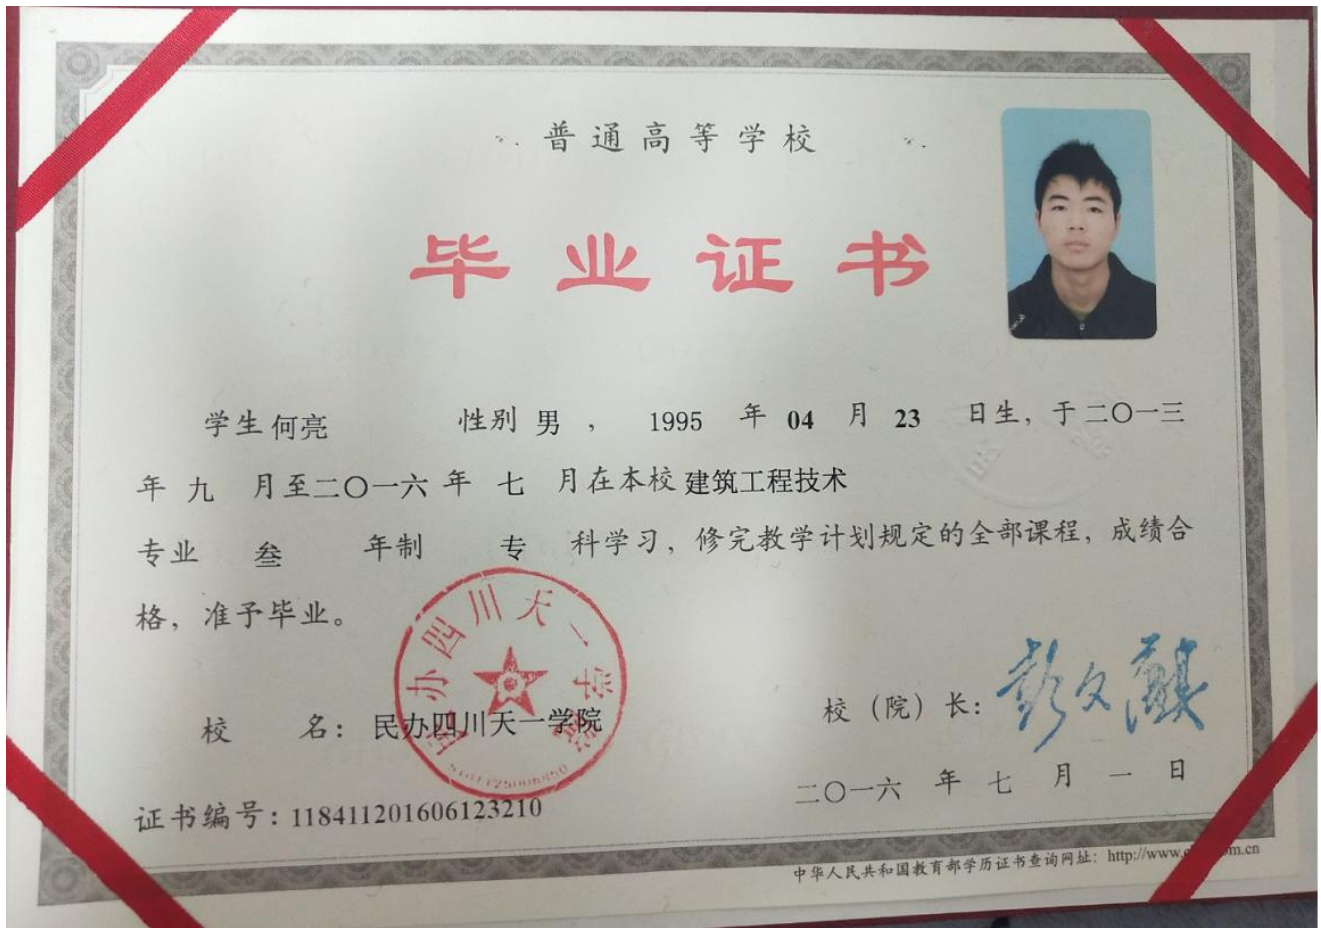 普通高等学校
毕业证书
学生 何亮 性别 男 ， 1995 年 04 月 23 日生，于二〇一三
年 九 月至二〇一六 年 七 月在本校 建筑工程技术
专业 叁 年制 专 科学习，修完教学计划规定的全部课程，成绩合
格，准予毕业。
民办四川天一学院
校 名： 民办四川天一学院
校（院）长：
二〇一六 年 七 月 一 日
证书编号：118411201606123210
中华人民共和国教育部学历证书查询网址： http://www.